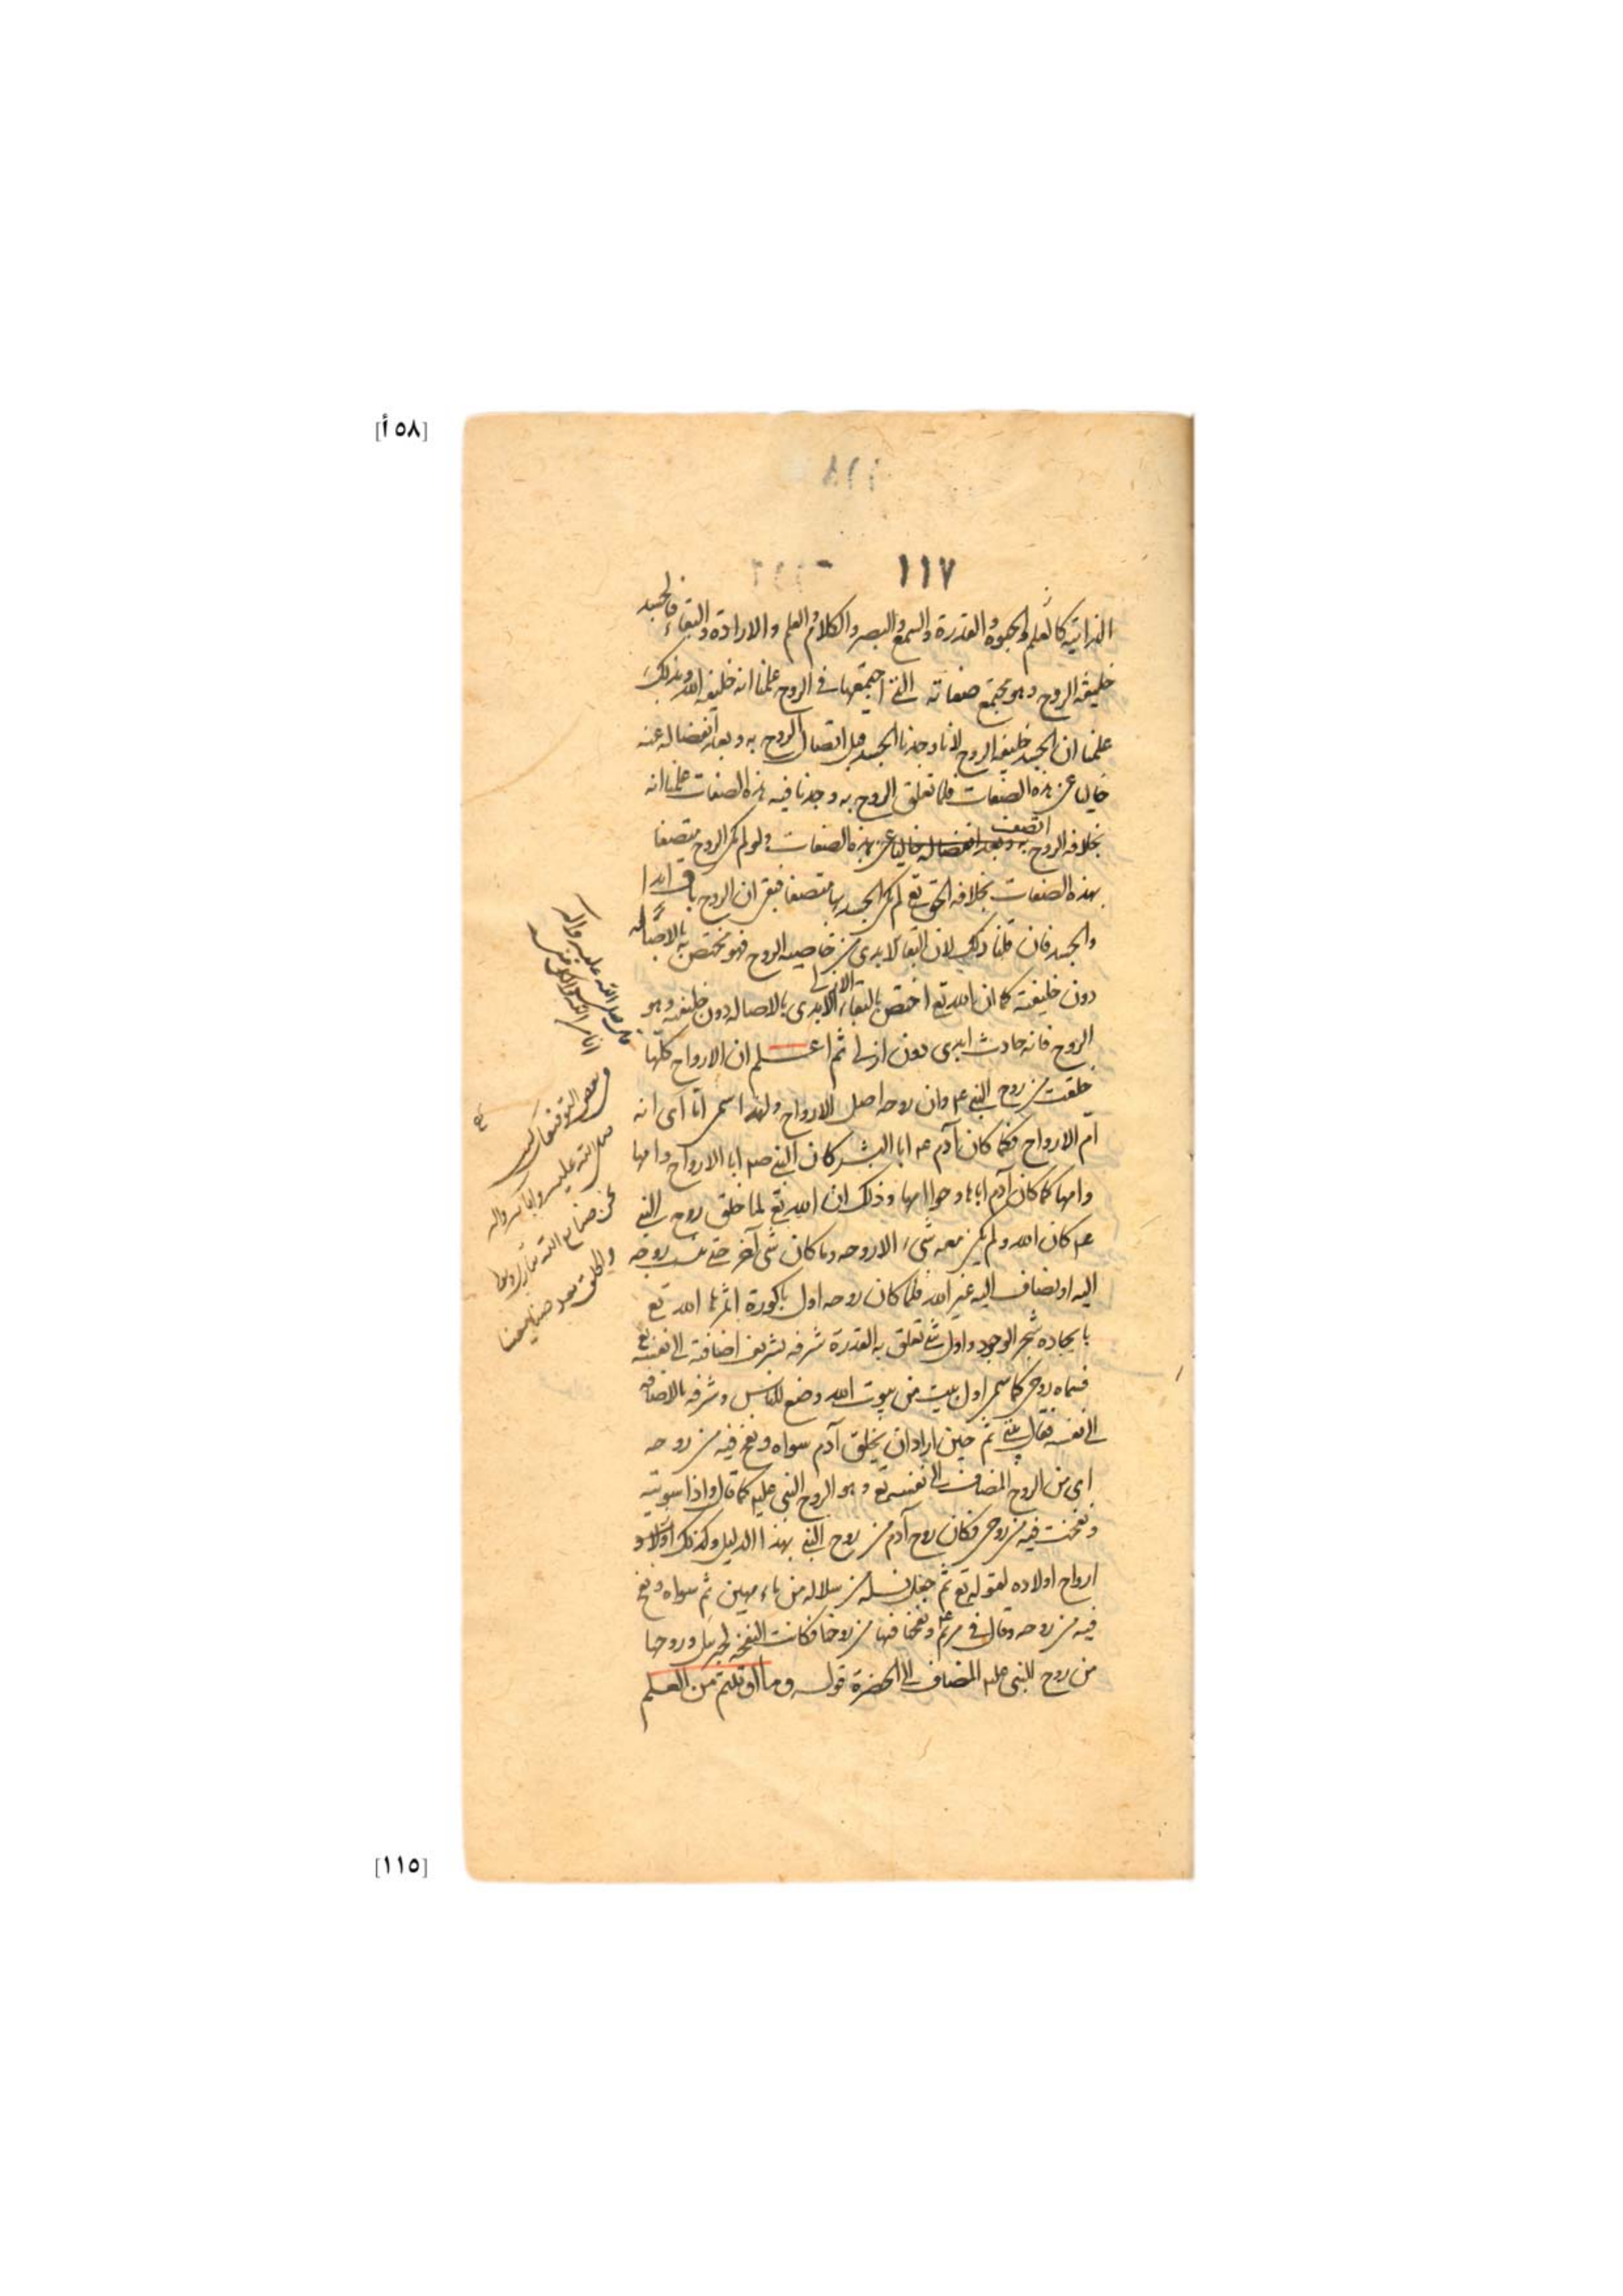 [٥٨ أ]
١١٧
الذاتية كالعلم والحيوة والقدرة والسمع والبصر والكلام والعلم والارادة والبقاء فالجسد
خليفة الروح وهو مجتمع صفاته التى اجتمعها فى الروح علمنا انه خليفة الله وبذلك
علمنا ان الجسد خليفة الروح لانا وجدنا الجسد قبل اتصال الروح به وبعد انفصاله عنه
خاليا عن هذه الصفات فلما تعلق الروح به وجدنا فيه هذه الصفات علمنا انه
بخلافه الروح اتصف به وبعد انفصاله خاليا عن هذه الصفات ولو لم يكن الروح متصفا
بهذه الصفات بخلافه الحق تع لم يكن الجسد بها متصفا فبقى ان الروح باق ابدا
والجسد فان قلنا ذلك لان البقاء الابدى من خاصية الروح فهو مختص به بالاصالة
دون خليفته كما ان الله تع اختص بالبقاء الازلى الابدى بالاصالة دون خليفته وهو
الروح فانه حادث ابدى دون ازلى ثم اعلم ان الارواح كلها
خلقت من روح النبى عم وان روحه اصل الارواح ولهذا سمى اميا اى انه
ام الارواح فكما كان آدم عم ابا البشر كان النبى صم ابا الارواح وامها
وامها كما كان آدم ابا وحوا امها وذلك ان الله تع لما خلق روح النبى
عم كان الله ولم يكن معه شىء الا روحه وما كان شىء آخر حتى ينسب روحه
اليه او يضاف اليه غير الله فلما كان روحه اول باكورة اثمرها الله تع
بايجاده شجر الوجود واول شىء تعلق به القدرة شرفه بتشريف اضافته الى نفسه تع
فسماه روحى كما سمى اول بيت من بيوت الله وضع للناس وشرفه بالاضافة
الى نفسه فقال بيتى ثم حين اراد ان يخلق آدم سواه ونفخ فيه من روحه
اى من الروح المضاف الى نفسه تع وهو الروح النبى عليه كما قال واذا سويته
ونفخت فيه من روحى فكان روح آدم من روح النبى بهذا الدليل وكذلك اولاد
ارواح اولاده لقوله تع ثم جعل نسله من سلالة من ماء مهين ثم سواه ونفخ
فيه من روحه وقال فى مريم عم ونفخنا فيها من روحنا فكانت النفخة لجبريل وروحها
من روح النبى عليه المضاف الى الحضرة قوله وما اوتيتم من العلم
صلى الله عليه واله
انا من الله
صلى الله عليه واله
نحن صنايع الله
والخلق بعد صنايعنا
[١١٥]